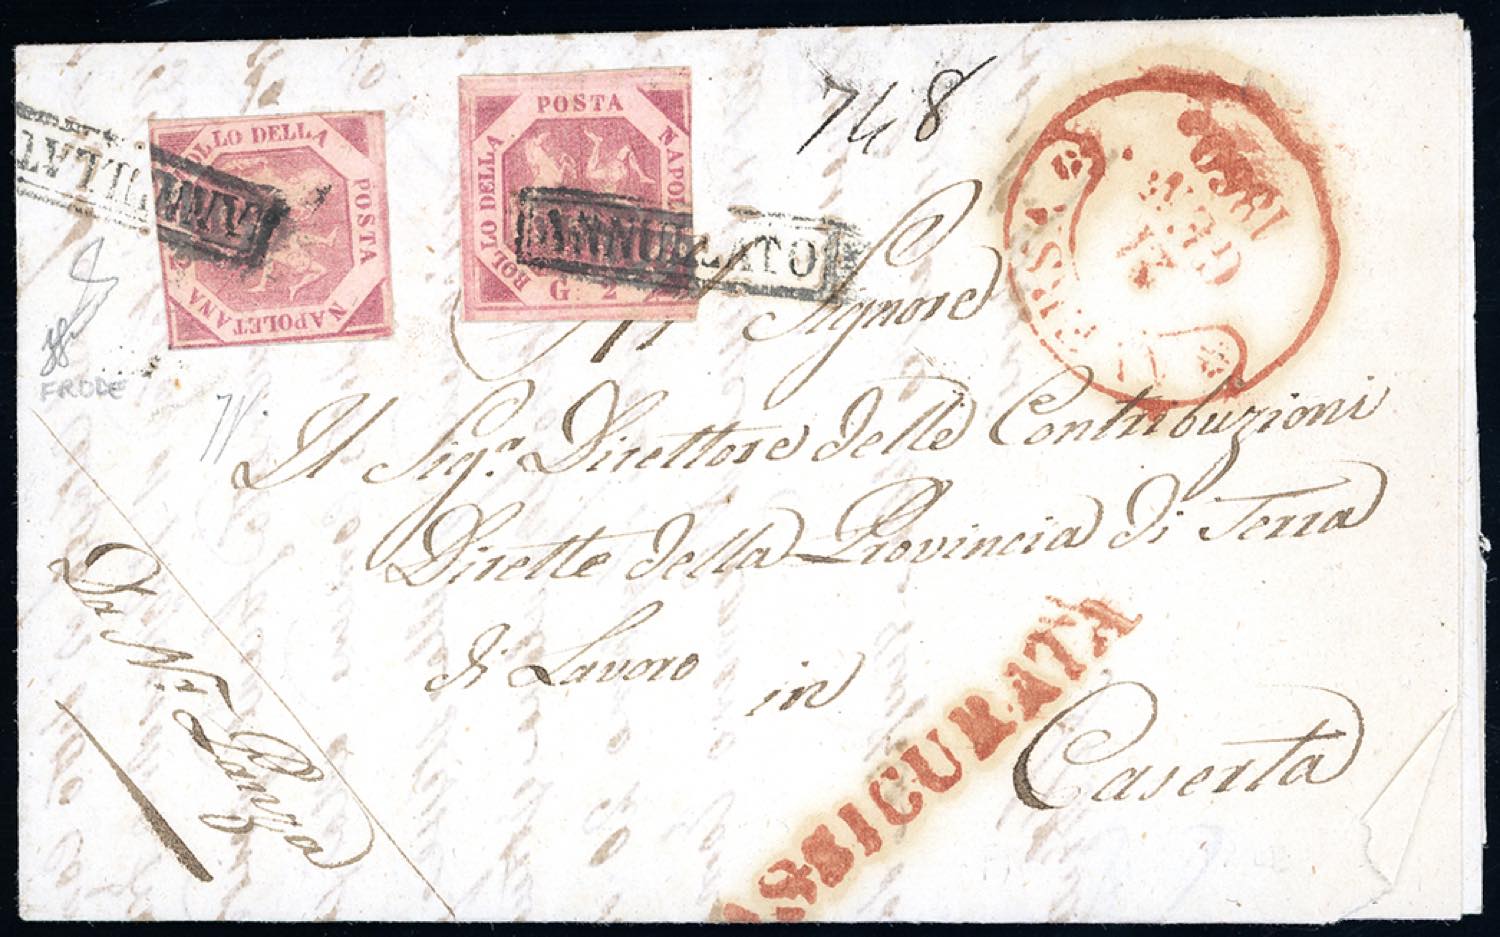 ANNULLATO
BOLLO DELLA
POSTA
NAPOLETANA
ANNULLATO
BOLLO DELLA
POSTA
NAPOL
G. 2
748
AVERSA
1860
GEN
FRODE
Signore
Il Sigr. Direttore delle Contribuzioni
Dirette della Provincia di Terra
di Lavoro
in
Caserta
ASSICURATA
Da Na. Lanza